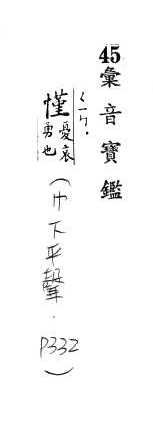 45彙音寶鑑
ㄑㄧㄣˊ
懂 憂哀
勇也
(巾下平聲.
P332)